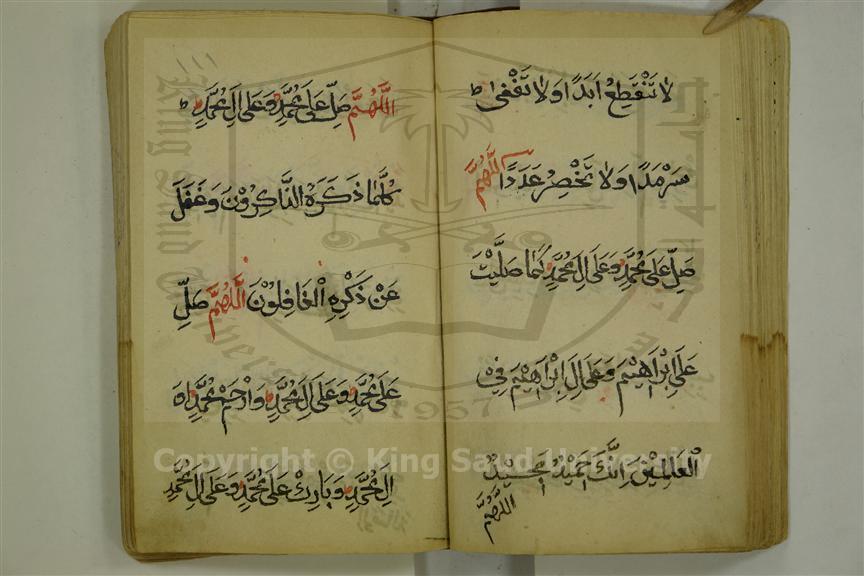 لا تَنْقَطِعُ اَبَدًا وَلا تَفْنٰى
سَرْمَدًا وَلا تَحْصِرُ عَدَدًا اَللّٰهُمَّ
صَلِّ عَلٰى مُحَمَّدٍ وَعَلٰى اٰلِ مُحَمَّدٍ كَمَا صَلَّيْتَ
عَلٰى اِبْرَاهِيْمَ وَعَلٰى اٰلِ اِبْرَاهِيْمَ فِيْ
الْعَالَمِيْنَ اِنَّكَ حَمِيْدٌ مَجِيْدٌ
اللّٰهُمَّ
١١١
اَللّٰهُمَّ صَلِّ عَلٰى مُحَمَّدٍ وَعَلٰى اٰلِ مُحَمَّدٍ
كُلَّمَا ذَكَرَهُ الذَّاكِرُوْنَ وَغَفَلَ
عَنْ ذِكْرِهِ الْغَافِلُوْنَ اَللّٰهُمَّ صَلِّ
عَلٰى مُحَمَّدٍ وَعَلٰى اٰلِ مُحَمَّدٍ وَارْحَمْ مُحَمَّدًا وَ
اٰلَ مُحَمَّدٍ وَبَارِكْ عَلٰى مُحَمَّدٍ وَعَلٰى اٰلِ مُحَمَّدٍ
1957
Copyright © King Saud University